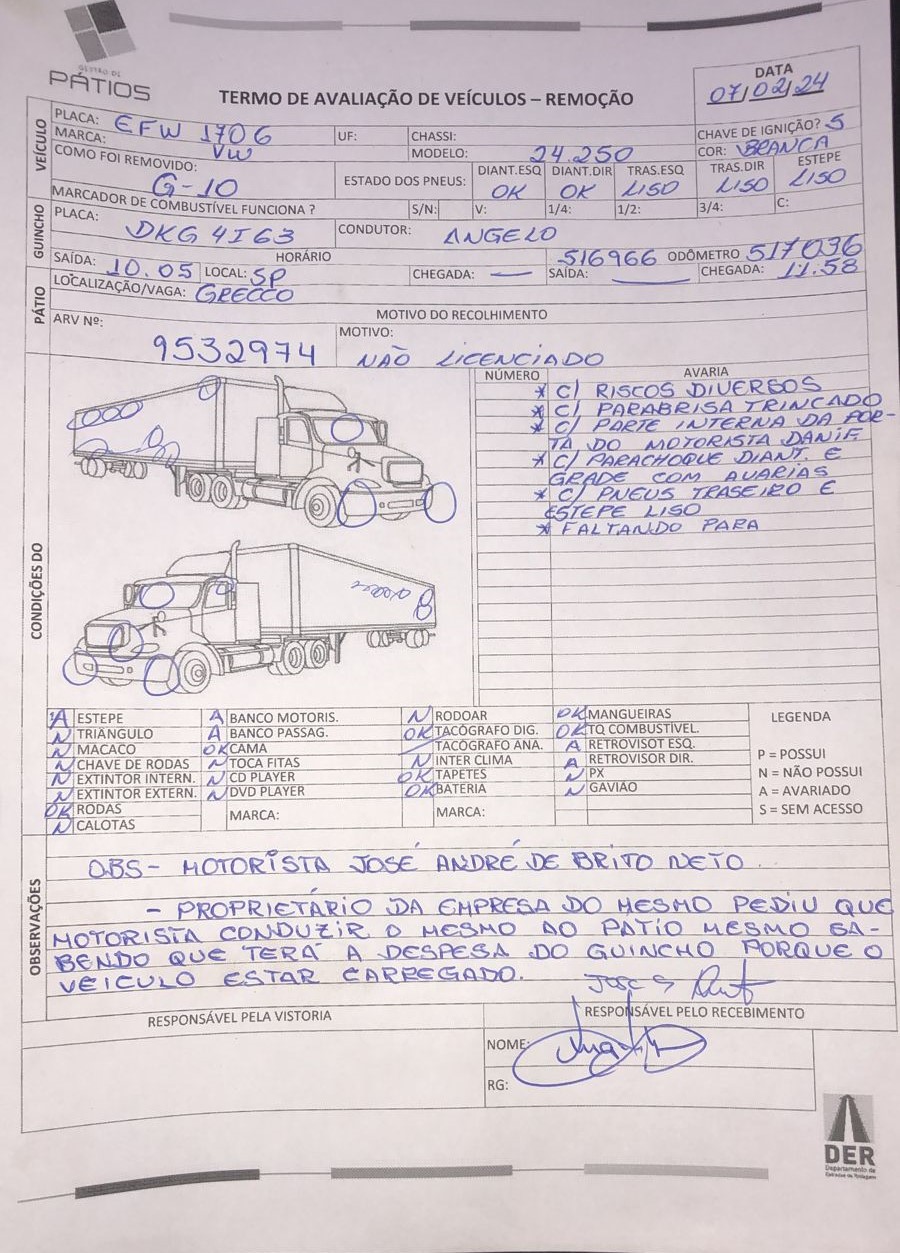 GESTÃO DE
PÁTIOS
TERMO DE AVALIAÇÃO DE VEÍCULOS – REMOÇÃO
DATA
07/02/24
VEÍCULO
PLACA: EFW 1706
UF:
CHASSI:
CHAVE DE IGNIÇÃO? S
MARCA: VW
MODELO: 24.250
COR: BRANCA
COMO FOI REMOVIDO: G-10
ESTADO DOS PNEUS:
DIANT.ESQ OK
DIANT.DIR OK
TRAS.ESQ LISO
TRAS.DIR LISO
ESTEPE LISO
MARCADOR DE COMBUSTÍVEL FUNCIONA ?
S/N:
V:
1/4:
1/2:
3/4:
C:
GUINCHO
PLACA: DKG 4I63
CONDUTOR: ANGELO
HORÁRIO
516966 ODÔMETRO 517036
SAÍDA: 10.05
LOCAL: SP
CHEGADA: —
SAÍDA: —
CHEGADA: 11.58
PÁTIO
LOCALIZAÇÃO/VAGA: GRECCO
MOTIVO DO RECOLHIMENTO
ARV Nº: 9532974
MOTIVO: NÃO LICENCIADO
CONDIÇÕES DO
NÚMERO
AVARIA
* C/ RISCOS DIVERSOS
* C/ PARABRISA TRINCADO
* C/ PARTE INTERNA DA POR-
TA DO MOTORISTA DANIF
* C/ PARACHOQUE DIANT. E
GRADE COM AVARIAS
* C/ PNEUS TRASEIRO E
ESTEPE LISO
* FALTANDO PARA
A ESTEPE
N TRIÂNGULO
N MACACO
N CHAVE DE RODAS
N EXTINTOR INTERN.
N EXTINTOR EXTERN.
OK RODAS
N CALOTAS
A BANCO MOTORIS.
A BANCO PASSAG.
OK CAMA
N TOCA FITAS
N CD PLAYER
N DVD PLAYER
MARCA:
N RODOAR
OK TACÓGRAFO DIG.
TACÓGRAFO ANA.
N INTER CLIMA
OK TAPETES
OK BATERIA
MARCA:
OK MANGUEIRAS
OK TQ COMBUSTÍVEL.
A RETROVISOT ESQ.
A RETROVISOR DIR.
N PX
N GAVIAO
LEGENDA
P = POSSUI
N = NÃO POSSUI
A = AVARIADO
S = SEM ACESSO
OBSERVAÇÕES
OBS - MOTORISTA JOSÉ ANDRÉ DE BRITO NETO
- PROPRIETÁRIO DA EMPRESA DO MESMO PEDIU QUE
MOTORISTA CONDUZIR O MESMO AO PATIO MESMO SA-
BENDO QUE TERÁ A DESPESA DO GUINCHO PORQUE O
VEICULO ESTAR CARREGADO.
RESPONSÁVEL PELA VISTORIA
RESPONSÁVEL PELO RECEBIMENTO
NOME:
RG:
DER
Departamento de
Estradas de Rodagem